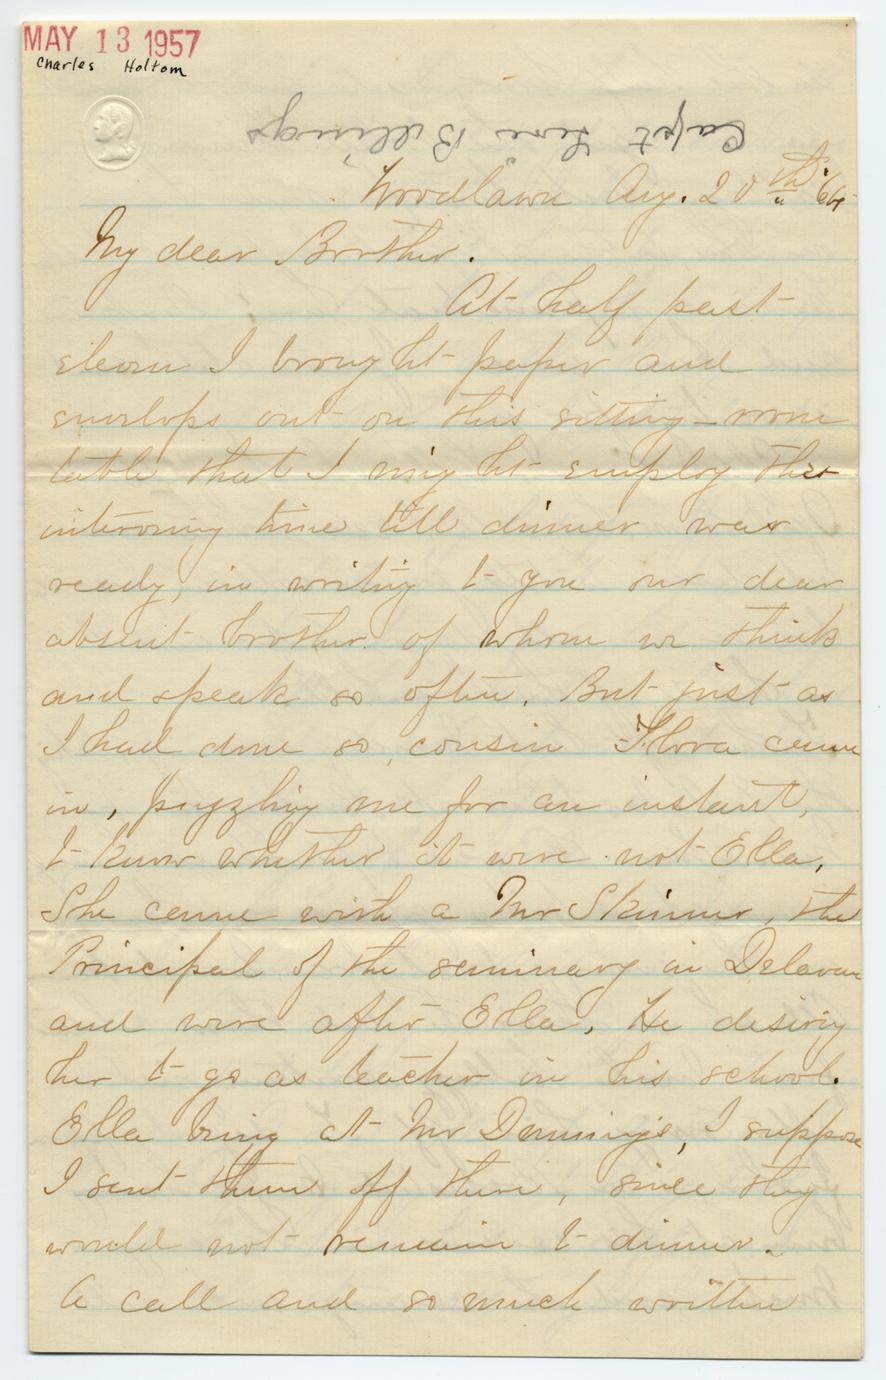 MAY 13 1957
Charles Holtom
Capt Levi Billings
Woodlawn Aug. 20th '64
My dear Brother.
At half past
eleven I brought paper and
envelops out on this sitting-room
table that I might employ the
intervening time till dinner was
ready, in writing to you our dear
absent brother of whom we think
and speak so often. But just as
I had done so, cousin Flora came
in, puzzling me for an instant,
to know whether it were not Ella,
She came with a Mr Skinner, the
Principal of the seminary in Delavan
and were after Ella, He desiring
her to go as teacher in his school.
Ella being at Mr I suppose
I sent them off there, since they
would not remain to dinner.
A call and so much written